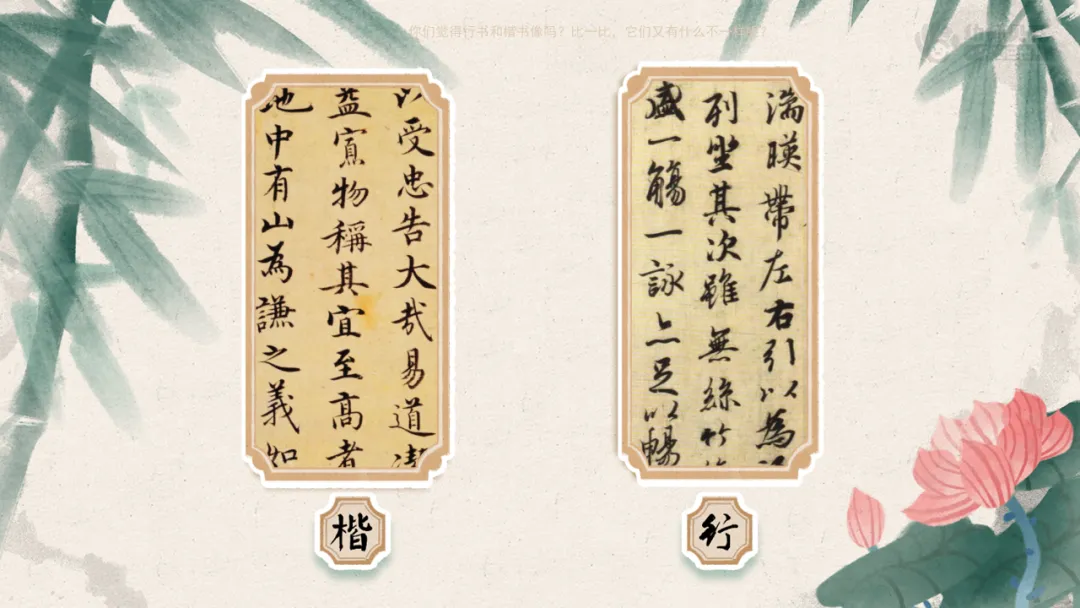 你们觉得行书和楷书像吗？比一比，它们又有什么不一样呢？
以受忠告大哉易道
益寡物稱其宜至高者
地中有山為謙之義如
湍暎帶左右引以為
列坐其次雖無絲竹
盛一觴一詠亦足以暢
楷
行